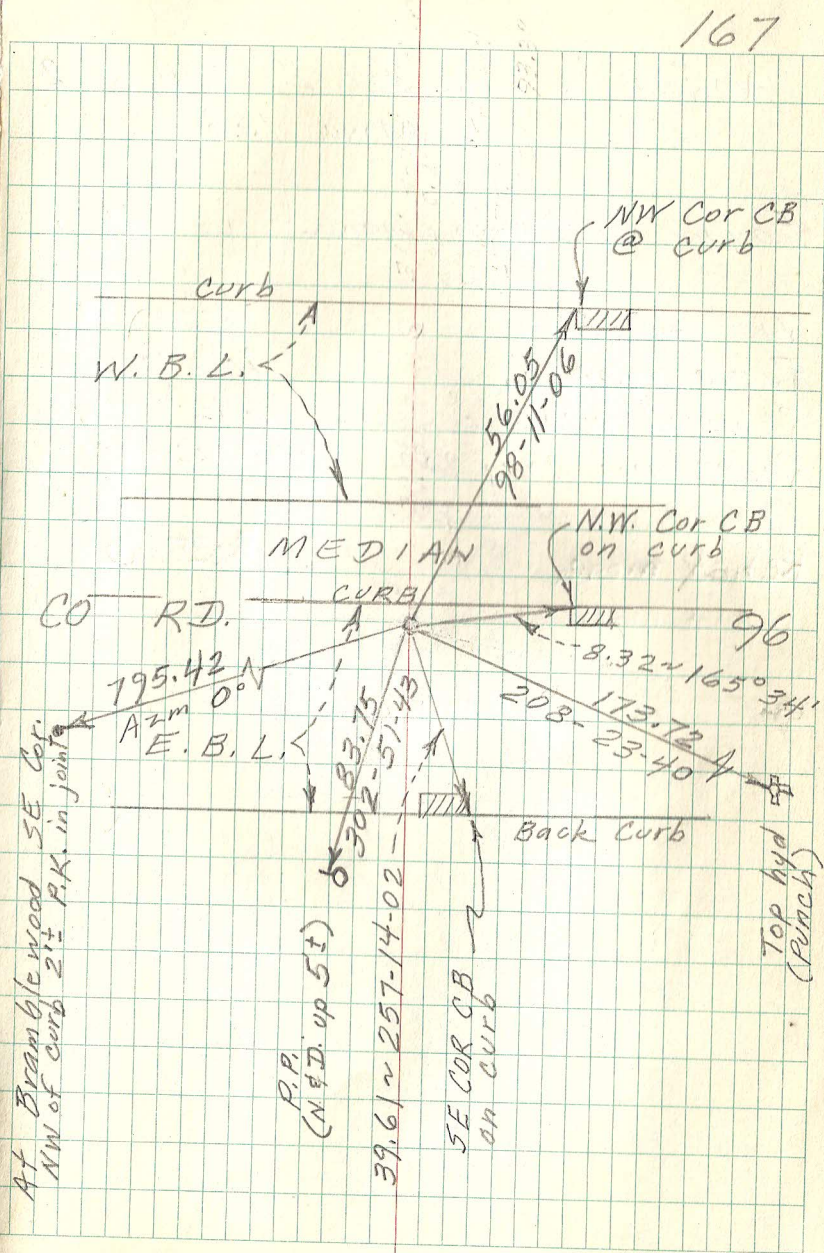 167
NW Cor CB
@ curb
curb
W. B. L.
56.05
98-11-06
N.W. Cor CB
on curb
MEDIAN
CURB
CO RD. 96
8.32 ~ 165° 34'
195.42
Azm 0°
E. B. L.
83.75
302-51-43
173.72
208-23-40
Back Curb
At Bramblewood SE Cor.
NW of curb 2'± P.K. in joint
P.P.
(N&D. up 5±)
39.61 ~ 257-14-02
SE COR CB
on curb
Top hyd
(Punch)